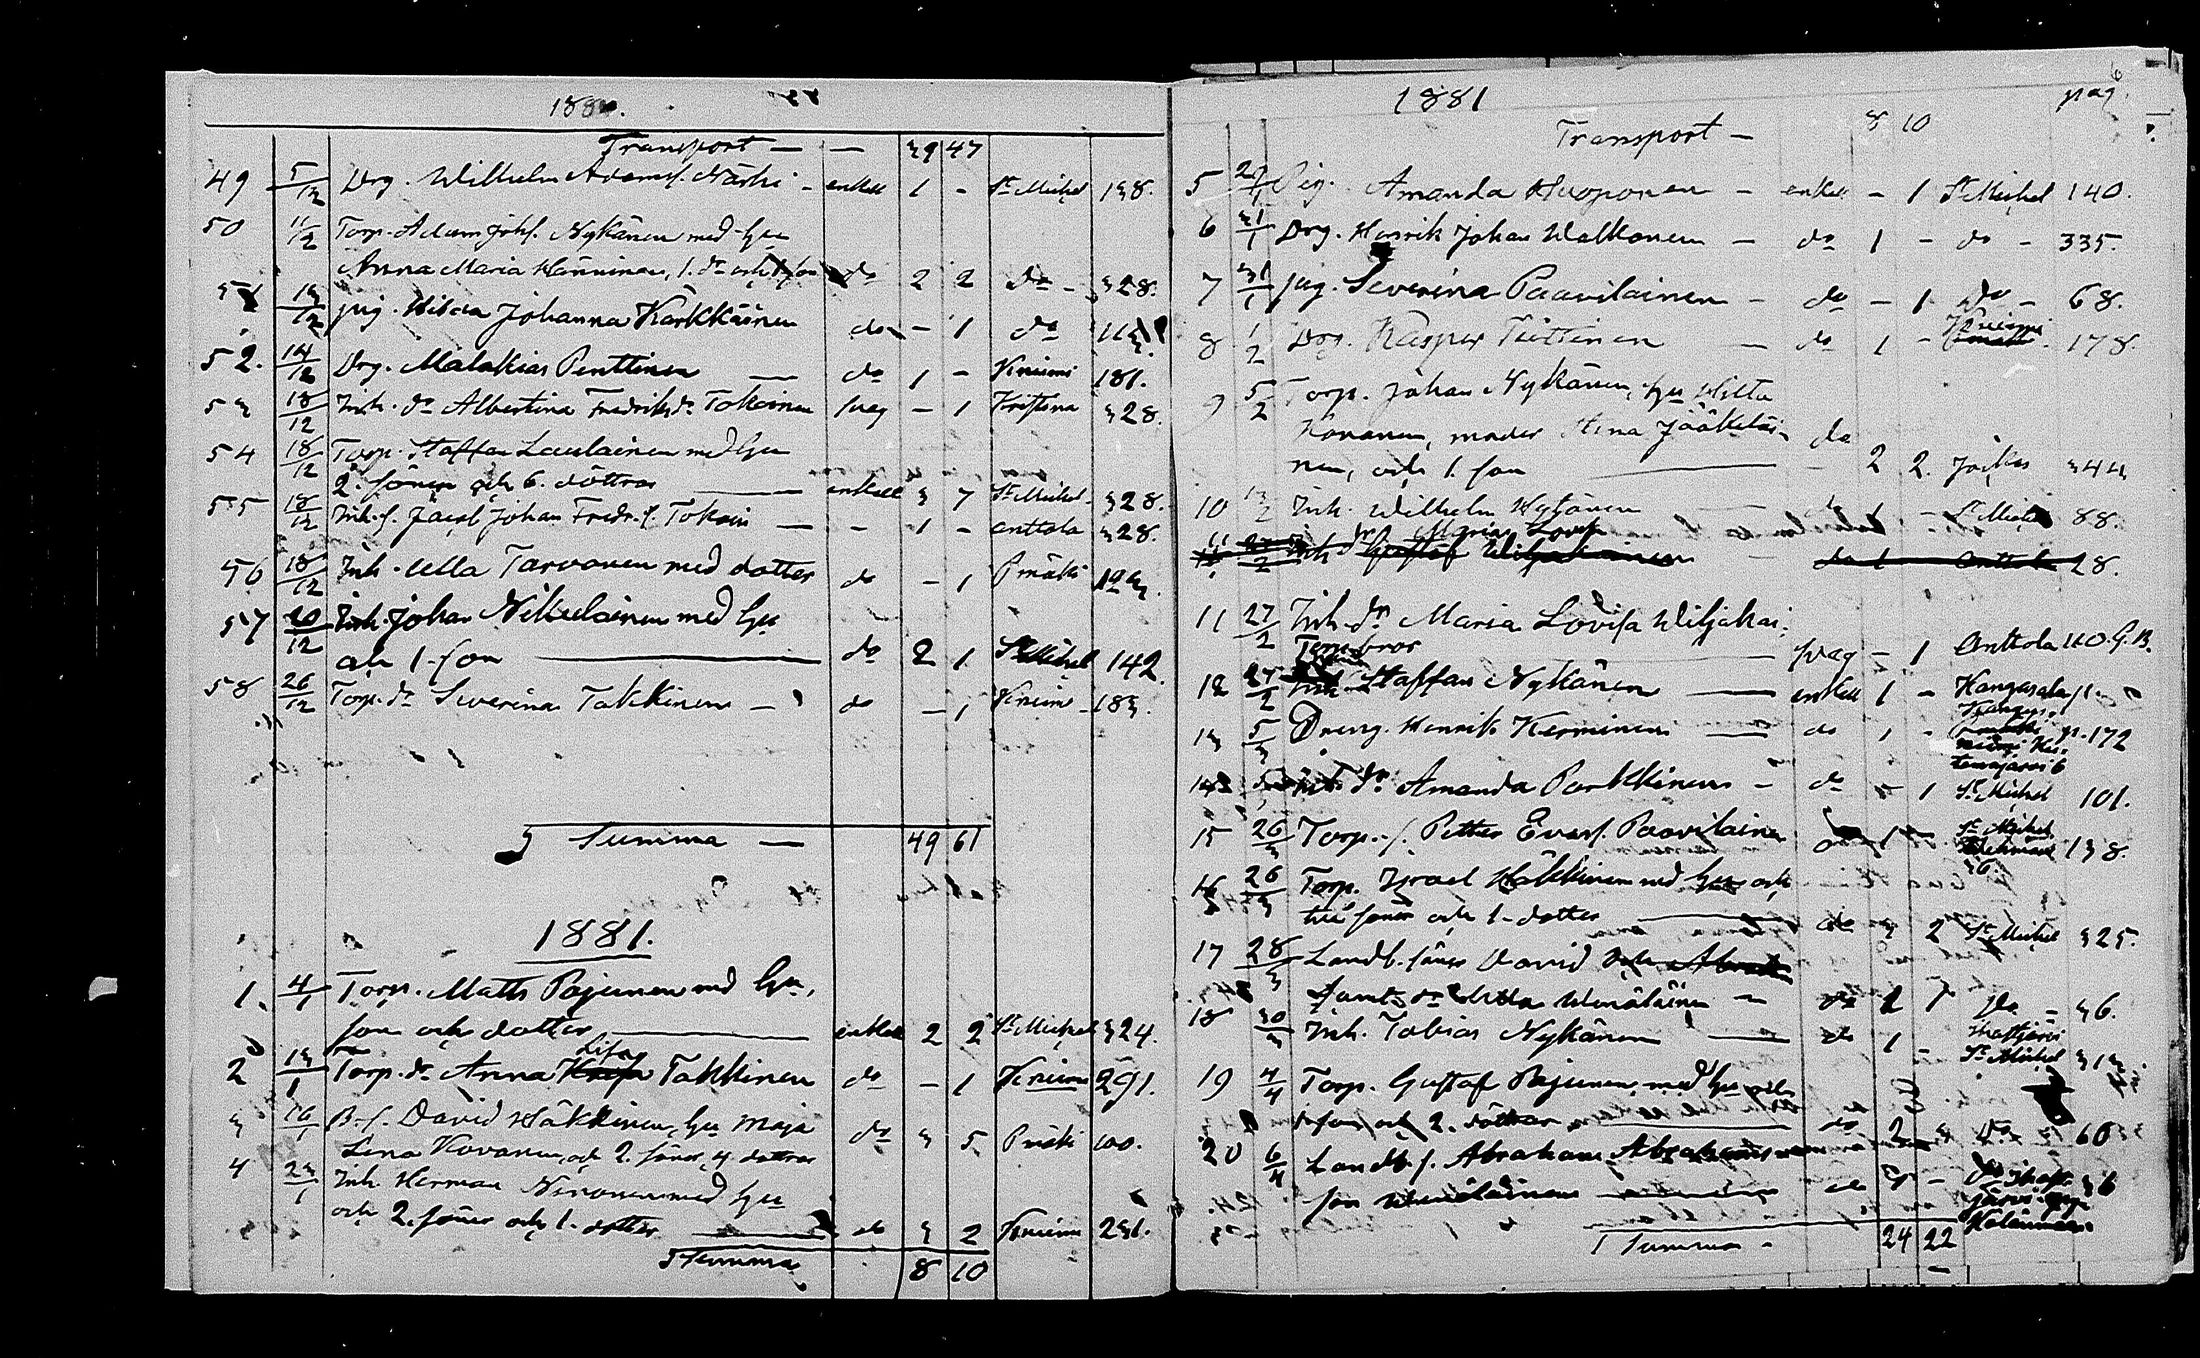 1880.
Transport — — 39 47
49 5/12 Drg. Wilhelm Adamsf. Närhi - enkel 1 - St Michel 138.
50 11/12 Torp. Adam Johf. Nykänen med hu
Anna Maria Hänninen, 1. dr och 1 son do 2 2 do - 328.
51 13/12 pig. Hilda Johanna Kärkkäinen do - 1 do
52. 14/12 Drg. Malakias Penttinen — do 1 - Kniemi 181.
53 18/12 Inh. dr Albertina Fredriksdr Tokoinen svag - 1 Kristina 328.
54 18/12 Torp. Staffan Laulainen med hu
2. söner och 6. döttrar — enkel 3 7 St Michel 328.
55 18/12 Inh. s. Jacob Johan Fredr. s. Tokoin — - 1 - Anttola 328.
56 18/12 Inh. Ulla Tarvonen med dotter do - 1 Pmäki 193.
57 20/12 Inh. Johan Nikulainen med hu
och 1. son — do 2 1 St Michel 142.
58 26/12 Torp. dr Severina Takkinen — do - 1 Kniemi 183.
Summa — 49 61
1881.
1. 4/1 Torp. Matts Pajunen med hu,
son och dotter — enkel 2 2 St Michel 324.
Lisa
2 13/1 Torp. dr Anna Takkinen do - 1 Kniemi 291.
3 16/1 B. s. David Häkkinen, hu Maja
Lena Kovanen, och 2. söner, 4 döttrar do 3 5 Pmäki 100.
4 23/1 Inh. Herman Nironen med hu
och 2. söner och 1. dotter — do 3 2 Kniemi 231.
Summa 8 10
1881 pag.
Transport — 8 10
5 29/1 Pig. Amanda Kuoponen - enkel - 1 St Michel 140.
6 31/1 Drg. Henrik Johan Walkonen - do 1 - do - 335.
7 31/1 pig. Severina Paavilainen - do - 1 do - 68.
8 1/2 Drg. Kasper Tiittinen — do 1 - Kniemi 178.
9 5/2 Torp. Johan Nykänen, hu
Kovanen, moder Stina Jääkeläi-
nen, och 1. son — do 2 2. Jockas 344
10 13/2 Inh. Wilhelm Nykänen — do 1 - St Michel 88.
Maria Lovisa
11 27/2 Inh. dr Gustaf Wiljakainen - do 1 Anttola 28.
11 27/2 Inh. dr Maria Lovisa Wiljakai-
— svag - 1 Anttola
12 27/2 Staffan Nykänen — enkel 1 - Kangasala
13 5/3 Dreng. Henrik Kerminen — do 1 - p. 172
14 5/3 Inh. dr Amanda Parkkinen - do - 1 St Michel 101.
15 26/3 Torp. s. Petter Evasf. Paavilainen do 1 - St Michel 138.
16 26/3 Torp. Israel Häkkinen med hu och
två söner och 1. dotter — do 3 2 St Michel 325.
17 28/3 Landb. söner David
samt dr Ulla — do 1 1 Do - 36.
18 30/3 Inh. Tobias Nykänen — do 1 - St Michel 313
19 4/4 Torp. Gustaf Pajunen med hu och
1 son och 2. döttrar — do 2 3 Do 60
20 6/4 Landb. s. Abraham
son — do 36
Summa - 24 22